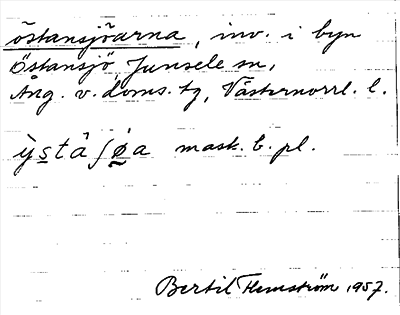 östansjöarna, inv. i byn
Östansjö, Junsele sn,
Ång. v. doms. tg, Västernorrl. l.
ỳstâʃø̱a mask. b. pl.
Bertil Flemström 1957.